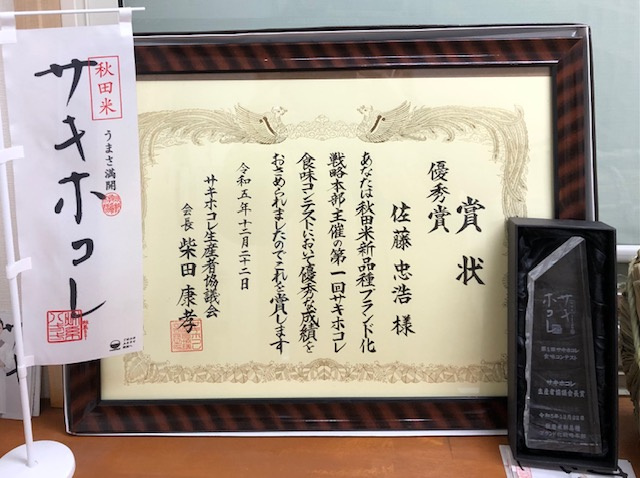 秋田米
うまさ満開
サキホコレ
賞状
優秀賞
佐藤忠浩様
あなたは秋田米新品種ブランド化
戦略本部主催の第一回サキホコレ
食味コンテストにおいて優秀な成績を
おさめられましたのでこれを賞します
令和五年十二月二十二日
サキホコレ生産者協議会
会長 柴田康孝
サキホコレ
第1回サキホコレ
食味コンテスト
サキホコレ
生産者協議会長賞
令和5年12月22日
秋田米新品種
ブランド化戦略本部